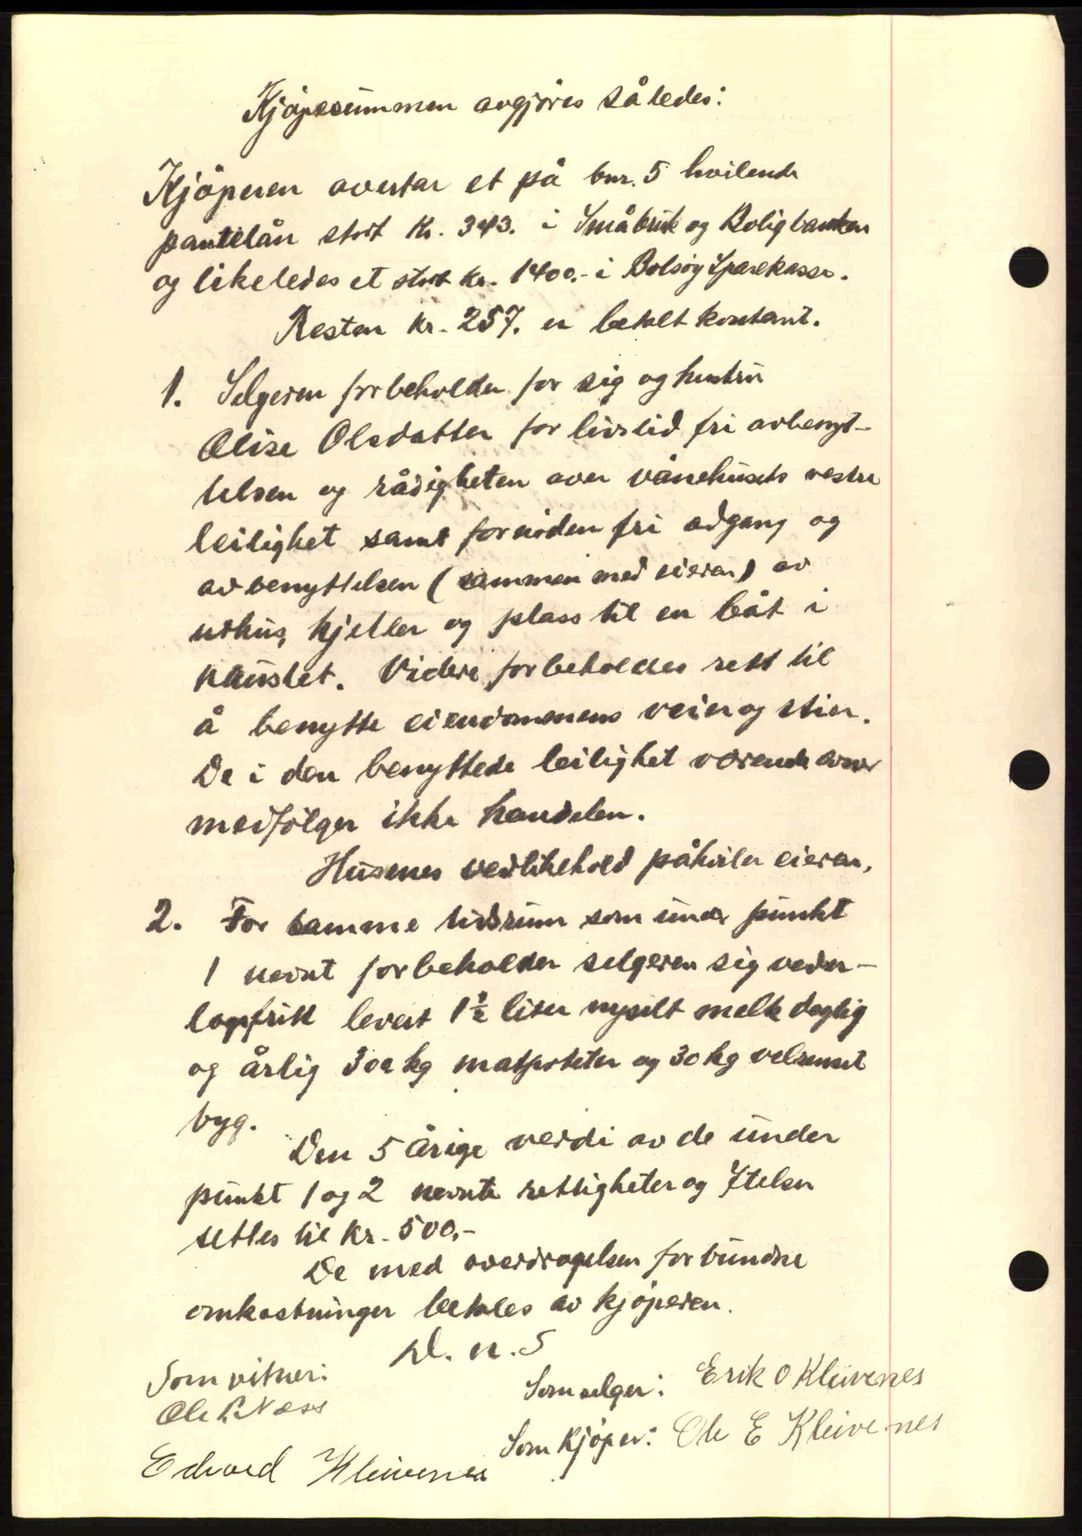 Kjöpesummen avgjöres således:
Kjöperen overtar et på bnr. 5 hvilende
pantelån stort kr. 343. i Småbruk og Boligbanken
og likeledes et stort kr. 1400.- i Bolsöy Sparekasse.
Resten kr. 257. er betalt kontant.
1. Selgeren forbeholder for sig og hustru
Olise Olsdatter for livstid fri avbenyt-
telsen og rådigheten over vånehusets vestre
leilighet samt fornöden fri adgang og
avbenyttelsen (sammen med eieren) av
uthus, kjeller og plass til en båt i
naustet. Videre forbeholdes rett til
å benytte eiendommens veier og stier.
De i den benyttede leilighet værende ovner
medfölger ikke handelen.
Husenes vedlikehold påhviler eieren.
2. For samme tidsrum som under punkt
1 nevnt forbeholder selgeren sig veder-
lagsfritt levert 1½ liter nysilt melk daglig
og årlig 300 kg matpoteter og 30 kg velrenset
byg.
Den 5 årige verdi av de under
punkt 1 og 2 nevnte rettigheter og Ytelser
settes til kr. 500,-
De med overdragelsen forbundne
omkostninger betales av kjöperen.
D. u. S
Som vitner:
Som selger: Erik O Kleivenes
Ole L Næss
Som kjöper: Ole E Kleivenes
Edvard Kleivenes